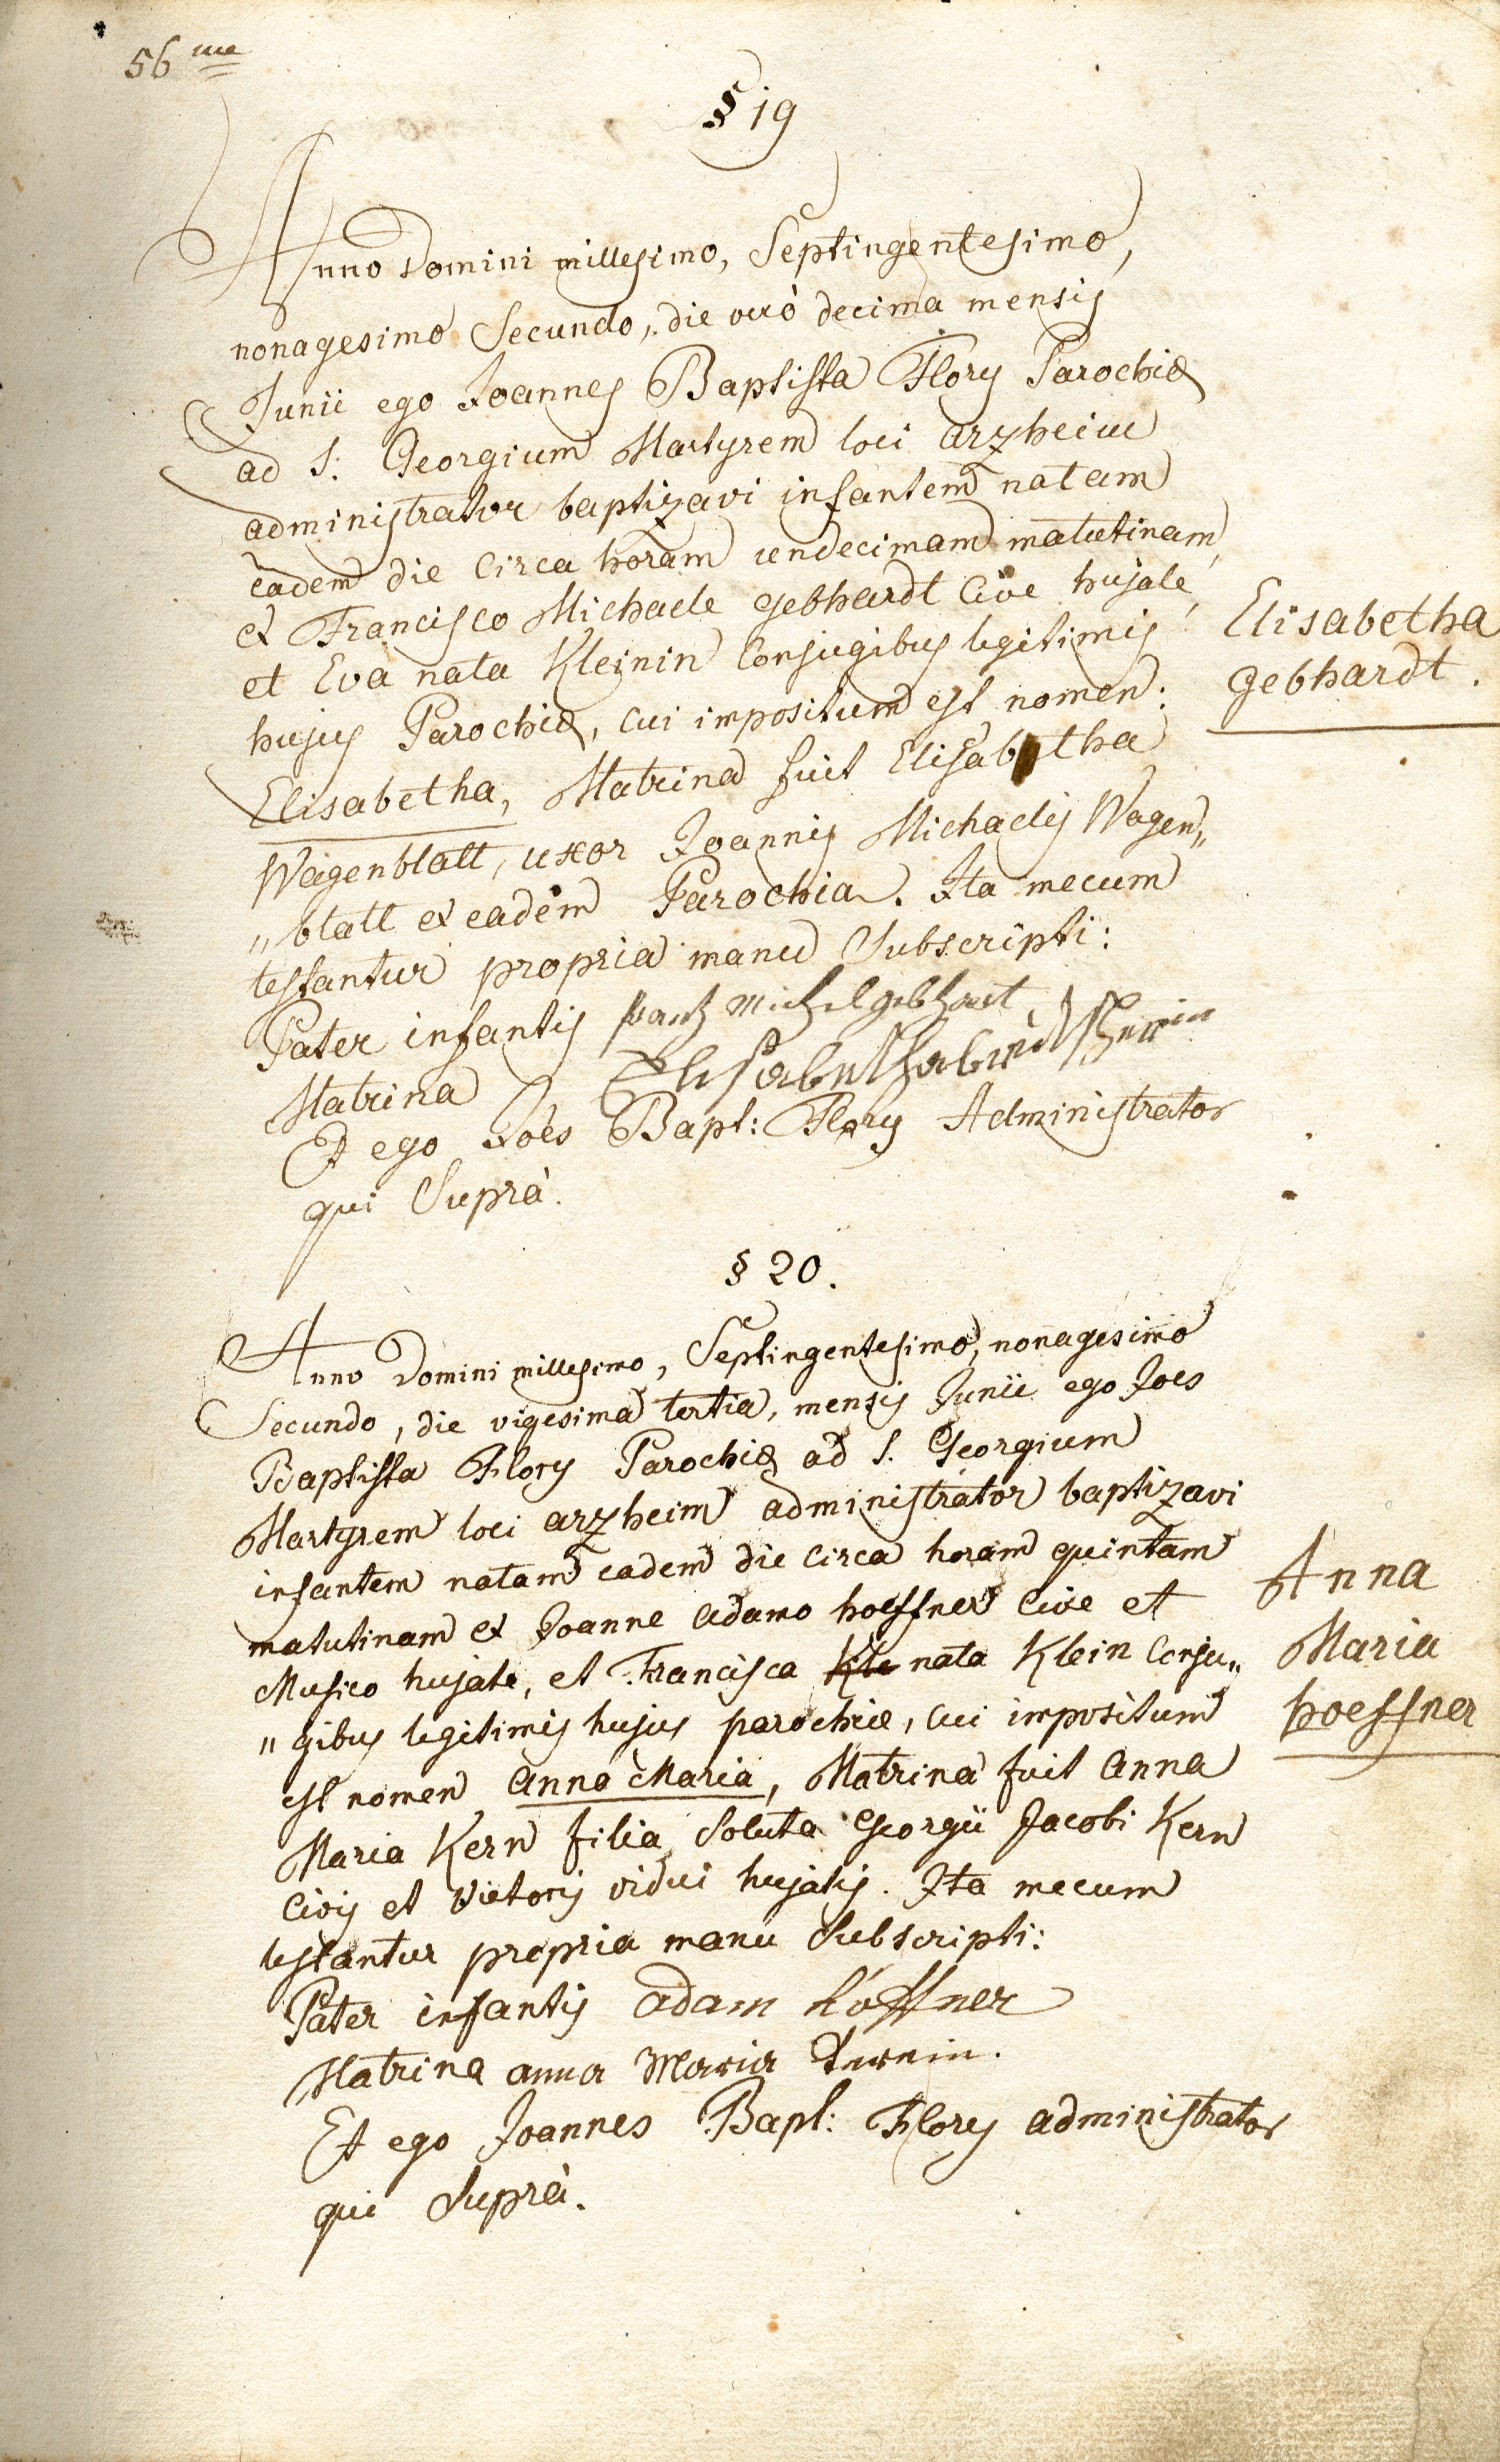 56 me
§ 19
Anno Domini millesimo, Septingentesimo,
nonagesimo Secundo, die verò decima mensis
Junii ego Joannes Baptista Flory Parochiæ
ad S: Georgium Martyrem loci arzheim
administrator baptizavi infantem natam
eadem die circa horam undecimam matutinam,
ex Francisco Michaele gebhardt Cive hujate,
et Eva nata Kleinin Conjugibus legitimis
hujus Parochiæ, cui impositum est nomen:
Elisabetha, Matrina fuit Elisabetha
Wagenblatt, uxor Joannis Michaelis Wagen„
„blatt ex eadem Parochia. Ita mecum
testantur propria manu Subscripti:
Pater infantis frantz Michel gebhart
Matrina
Et ego Joes Bapt: Flory Administrator
qui Suprà.
Elisabetha
gebhardt.
§ 20.
Anno Domini millesimo, Septingentesimo, nonagesimo
Secundo, die vigesima tertia, mensis Junii ego Joes
Baptista Flory Parochiæ ad S. Georgium
Martyrem loci arzheim administrator baptizavi
infantem natam eadem die circa horam quintam
matutinam ex Joanne adamo hoeffner Cive et
Musico hujate, et Francisca Kle nata Klein Conju„
„gibus legitimis hujus parochiæ, cui impositum
est nomen anna Maria, Matrina fuit anna
Maria Kern filia Soluta Georgii Jacobi Kern
Civis et Vietoris vidui hujatis. Ita mecum
testantur propria manu Subscripti:
Pater infantis adam höffner
Matrina anna Maria
Et ego Joannes Bapt: Flory administrator
qui Suprà.
Anna
Maria
hoeffner